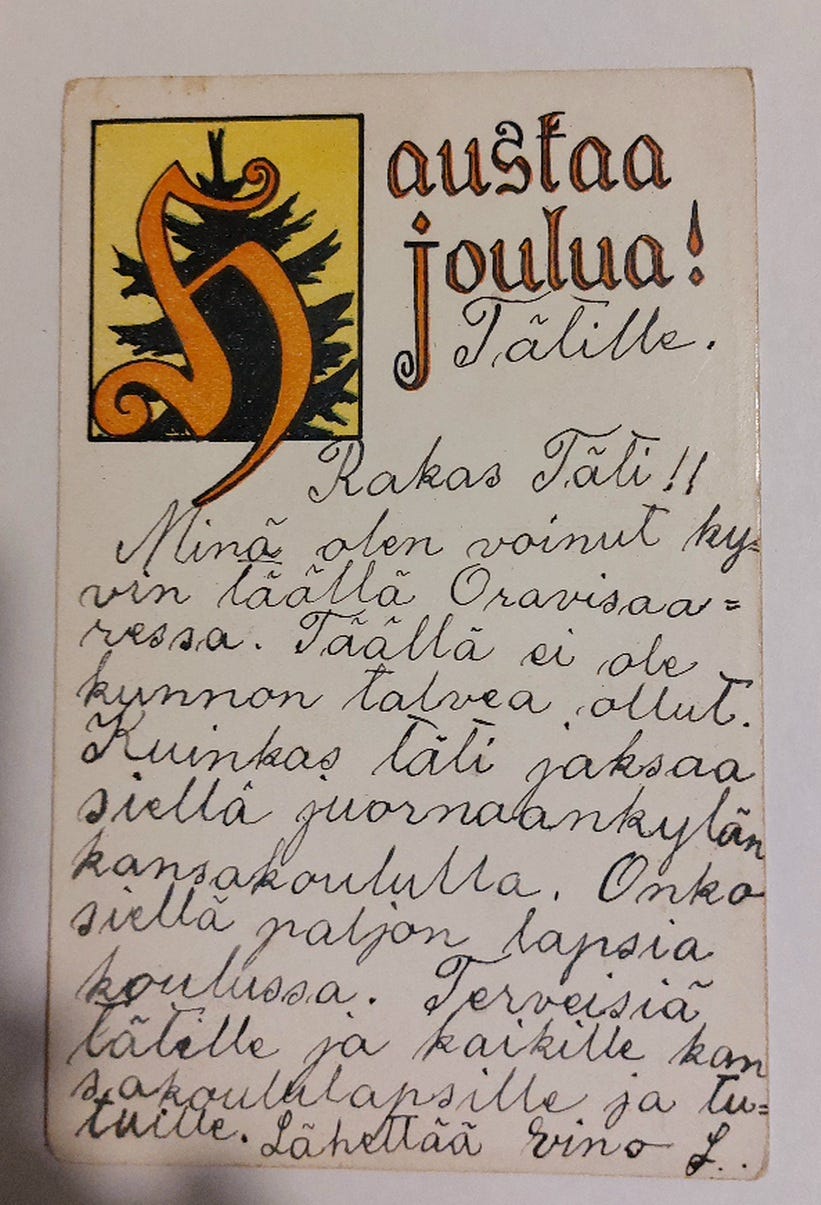 Hauskaa
joulua!
Tätille.
Rakas Täti!!
Minä olen voinut hy=
vin täällä Oravisaa=
ressa. Täällä ei ole
kunnon talvea ollut.
Kuinkas täti jaksaa
siellä juornaankylän
kansakoululla. Onko
siellä paljon lapsia
koulussa. Terveisiä
tätille ja kaikille kan
sakoululapsille ja tu=
tuille. Lähettää Eino L..